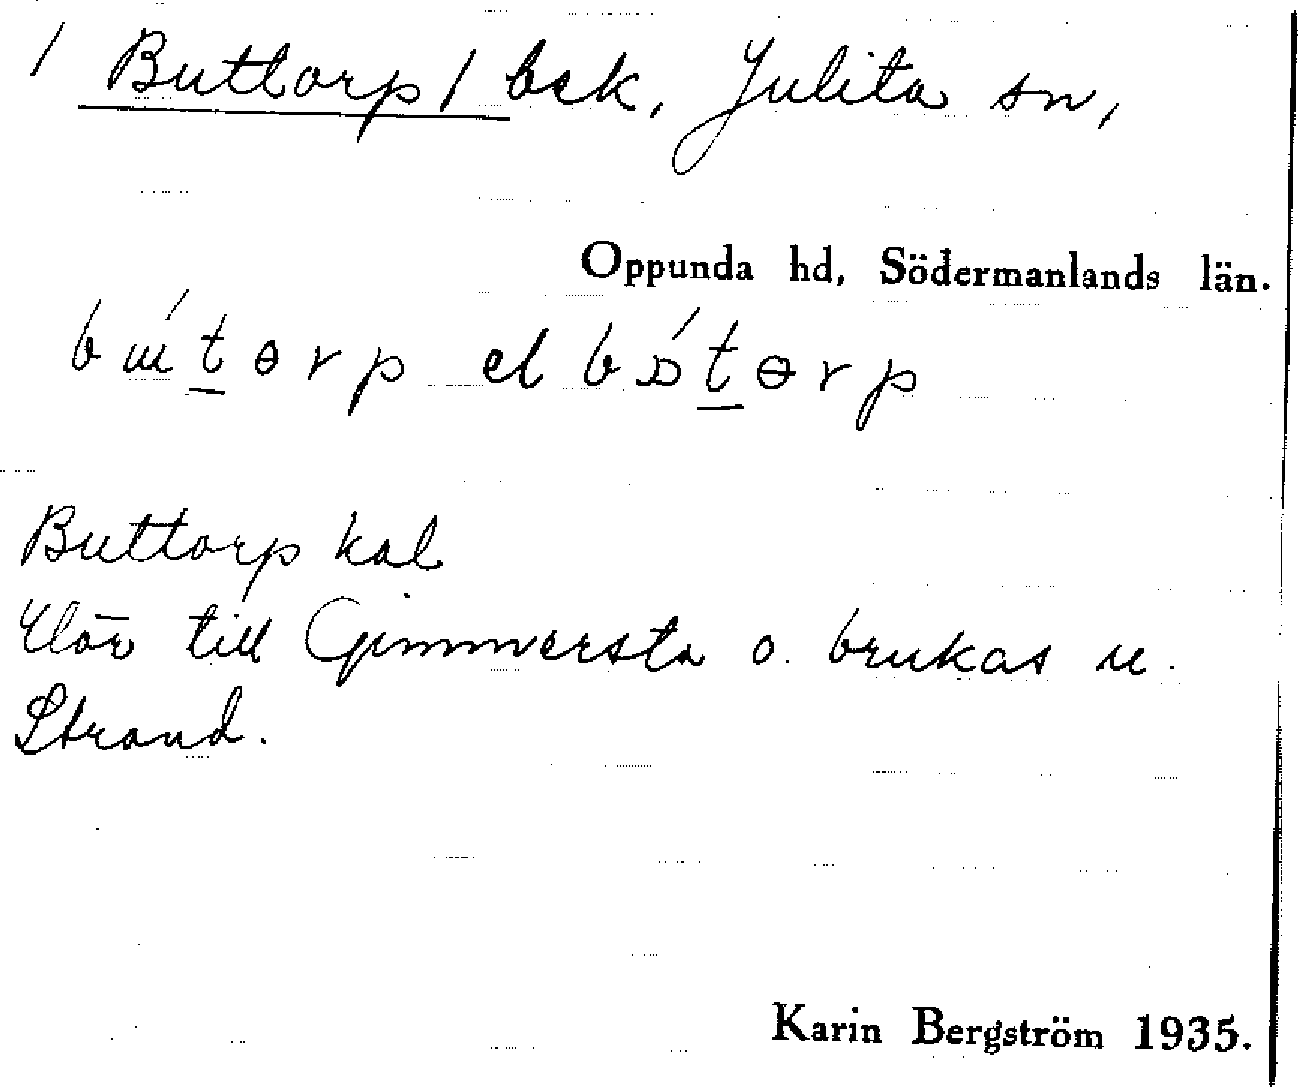 / Buttorp / bsk, Julita sn,
Oppunda hd, Södermanlands län.
bɯ́t̲ɵrp el bɔ́t̲ɵrp
Buttorp kal
Hör till Gimmersta o. brukas u.
Strand.
Karin Bergström 1935.